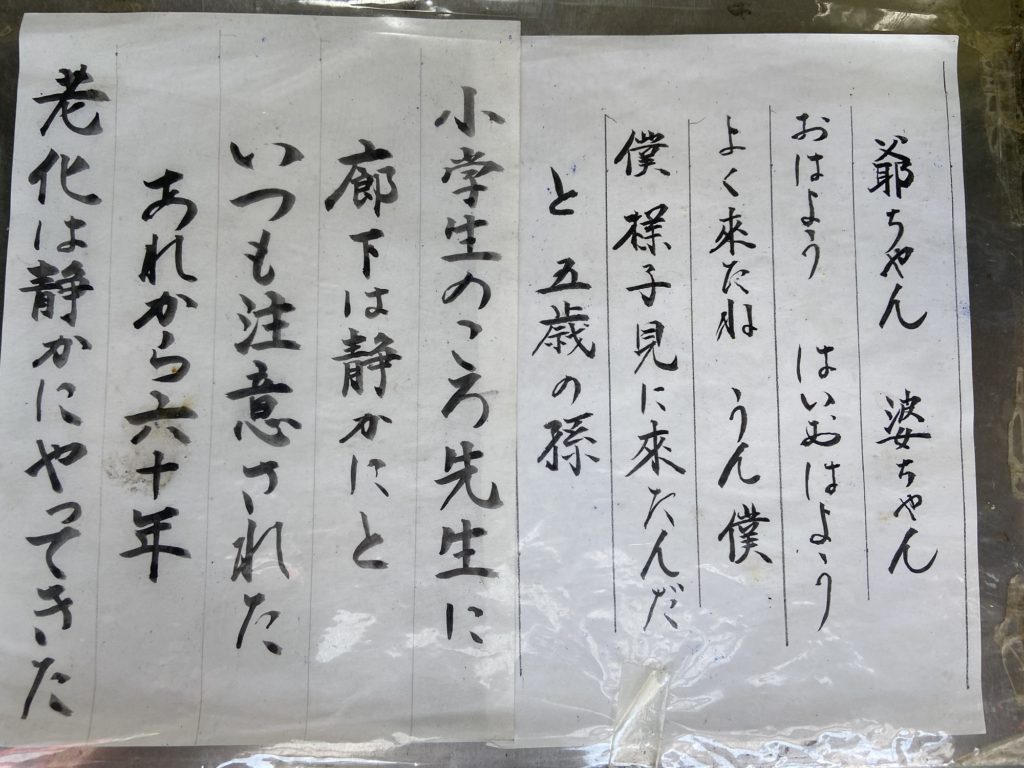 爺ちゃん 婆ちゃん
おはよう はいおはよう
よく來たね うん僕
僕様子見に來たんだ
と五歳の孫
小学生のころ先生に
廊下は静かにと
いつも注意された
あれから六十年
老化は静かにやってきた